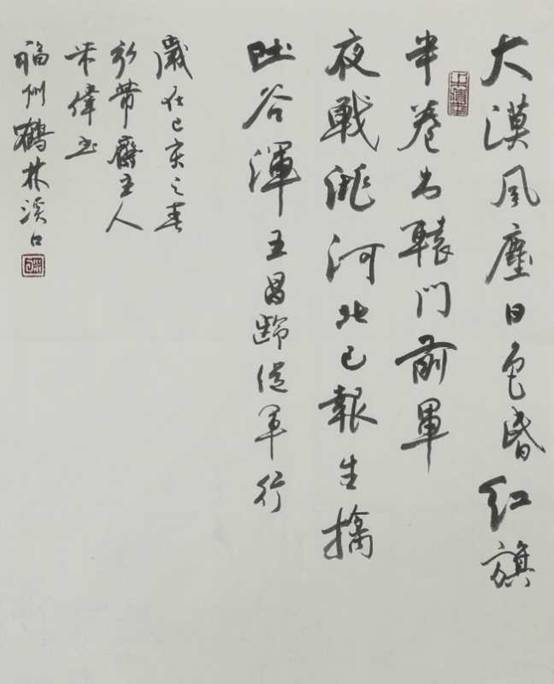 大漠風塵日色昏红旗
半卷出轅門前軍
夜戰洮河北已報生擒
吐谷渾王昌齡從军行
歲在己亥之春
齋主人
偉书
福州鶴林溪口